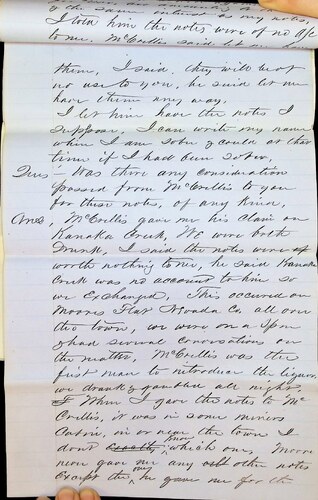 of the same interest as my notes,
I told him the notes were of no a/c
to me. McCrillis said let me have
them, I said, they will be of
no use to you, he said let me
have them any way.
I let him have the notes I
suppose, I can write my name
when I am sober & could at that
time if I had been sober,
Ques - Was there any consideration
passed from McCrillis to you
for these notes, of any kind,
Ans, McCrillis gave me his claim on
Kanaka Creek, We were both
drunk, I said the notes were of
worth nothing to me, he said Kanaka
Creek was no account to him so
we Exchanged, This occured on
Moores Flat Nevada Co, all over
the town, we were on a Spree
& had several conversations on
the matter, McCrillis was the
first man to introduce the liquor.
we drank & gambled all night,
When I gave the notes to Mc
Crillis, it was in some miners
Cabin, in or near the town I
dont know which one, Moore
never gave me any other notes
except the ones he gave me for the